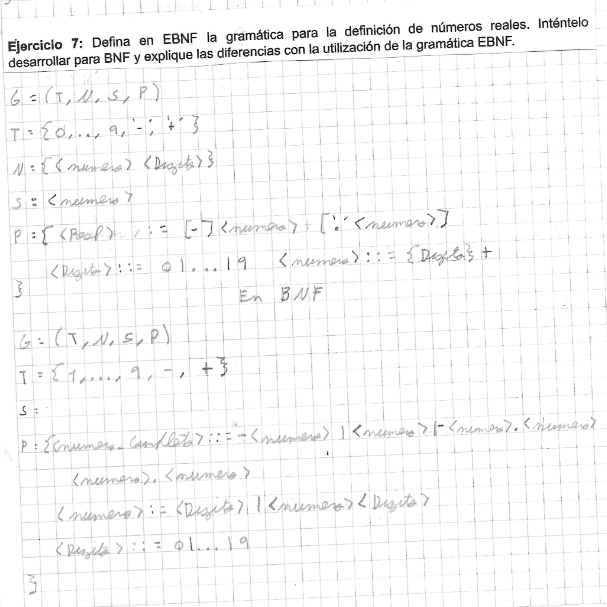 Ejercicio 7: Defina en EBNF la gramática para la definición de números reales. Inténtelo
desarrollar para BNF y explique las diferencias con la utilización de la gramática EBNF.
G = (T, N, S, P)
T = {0,..., 9, '-', '+'}
N = {<numero> <Digito>}
S = <numero>
P = { <Real> ::= [-] <numero> ['.' <numero>]
<Digito> ::= 0 1...19 <numero> ::= {Digito} +
}
En BNF
G = (T, N, S, P)
T = {1,...., 9, -, +}
S =
P = {<numero_completo> ::= -<numero> | <numero> | -<numero>.<numero>
<numero>.<numero>
<numero> := <Digito> | <numero> <Digito>
<Digito> ::= 0 1...19
}